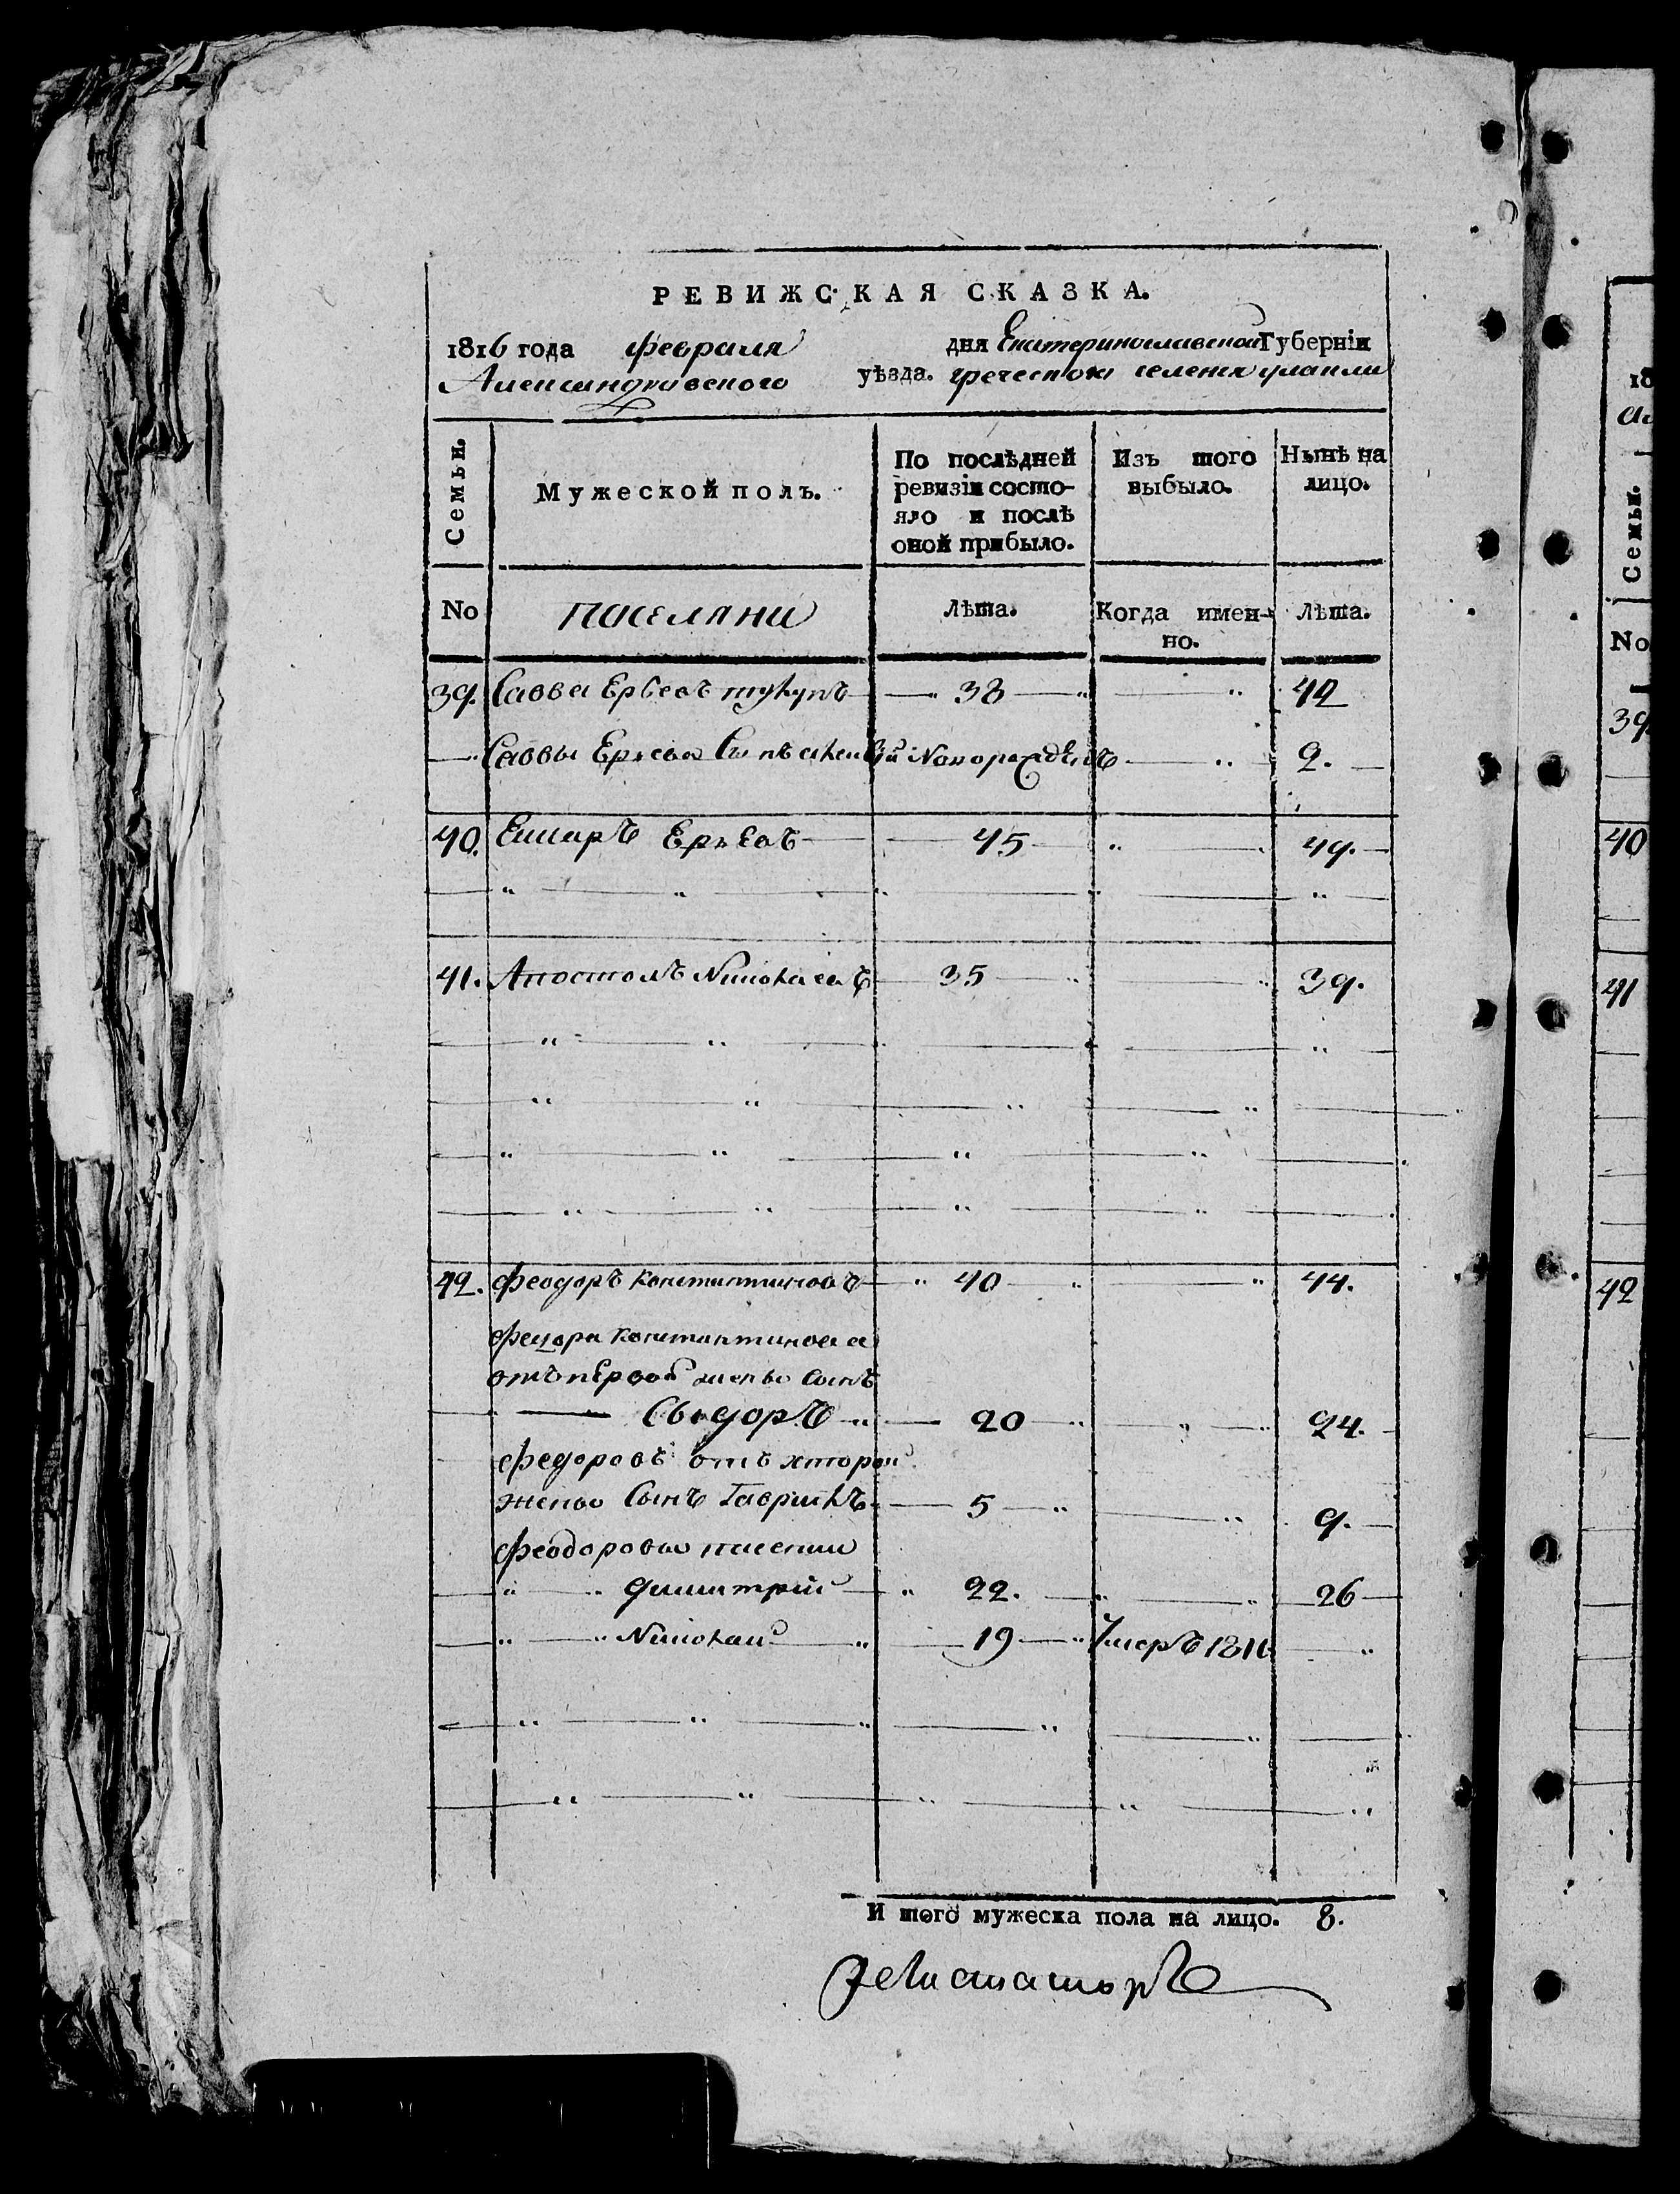 РЕВИЖСКАЯ СКАЗКА.
1816 года февраля дня Екатеринославской Губерніи
Александровского уѣзда. греческого селения улаклы
Семьи.
Мужеской полъ.
По послѣдней ревизіи состо-
яло и послѣ
оной прибыло.
Изъ того выбыло.
Нынѣ на лицо.
No
поселяни
Лѣта.
Когда имен-
но.
Лѣта.
39. Савва 38 42
Саввы Сынъ 2.
40. 45 49.
41. Апостолъ Николаевъ 35 39.
42. феодоръ константиновъ 40 44.
федора константинова
отъ первой жены сынъ
20 24.
федоровъ отъ второй
жены Сынъ Гаврилъ 5 9.
феодоровы
Димитрий 22. 26
Николай 19 Умеръ
И того мужеска пола на лицо. 8.
39
40
41
42
Семьи.
No